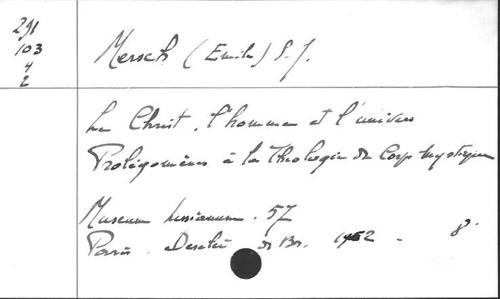 291
103
4
2
Mersch (Emile) S.J.
Le Christ, l'homme et l'univers
Prolégomènes à la théologie du Corps mystique
Museum Lessianum. 57
Paris. Desclée de Br. 1962 - 8°